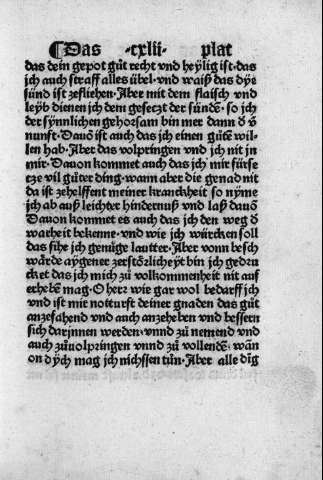 ¶Das ·cxlii· plat
das dein gepot gůt recht vnd heylig ist·das
jch auch straff alles übel·vnd waiß das dye
sünd ist zefliehen·Aber mit dem flaisch vnd
leyb dienen jch dem gesetzt der sünden·so jch
der synnlichen gehorsam bin mer dann d̕ v̄
nunft·Dauō ist auch das jch einen gůtē wil
len hab·Aber das volpringen vnd jch nit jn
mir·Dauon kommet auch das jch mir fürse
tze vil gůter ding·wann aber die genad nit
da ist zehelffent meiner kranckheit so nyme
jch ab auß leichter hindernuß vnd laß dauō
Dauon kommet es auch das jch den weg d̕
warheit bekenne·vnd wie jch würcken soll
das sihe jch genüge lautter·Aber vonn besch
wärde aygener zerstözlicheyt bin jch gedru
cket das jch mich zů volkommenheit nit auf
erhebē mag·O herz wie gar wol bedarff jch
vnd ist mir notturft deiner gnaden das gůt
anzefahend vnd auch anzeheben vnd bessern
sich darjnnen werden·vnnd zů nemend vnd
auch zůuolpringen vnnd zů vollendē·wān
on dych mag jch nichssen tůn·Aber alle dīg